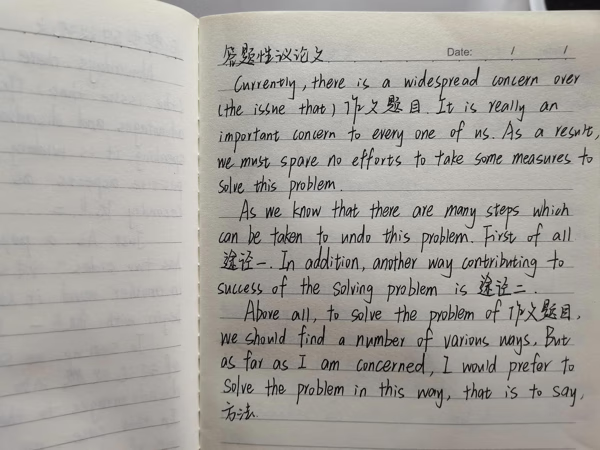 答题性议论文
Date: / /
Currently, there is a widespread concern over
(the issue that) 作文题目. It is really an
important concern to every one of us. As a result,
we must spare no efforts to take some measures to
solve this problem.
As we know that there are many steps which
can be taken to undo this problem. First of all
途径一. In addition, another way contributing to
success of the solving problem is 途径二.
Above all, to solve the problem of 作文题目,
we should find a number of various ways. But
as far as I am concerned, I would prefer to
solve the problem in this way, that is to say,
方法.